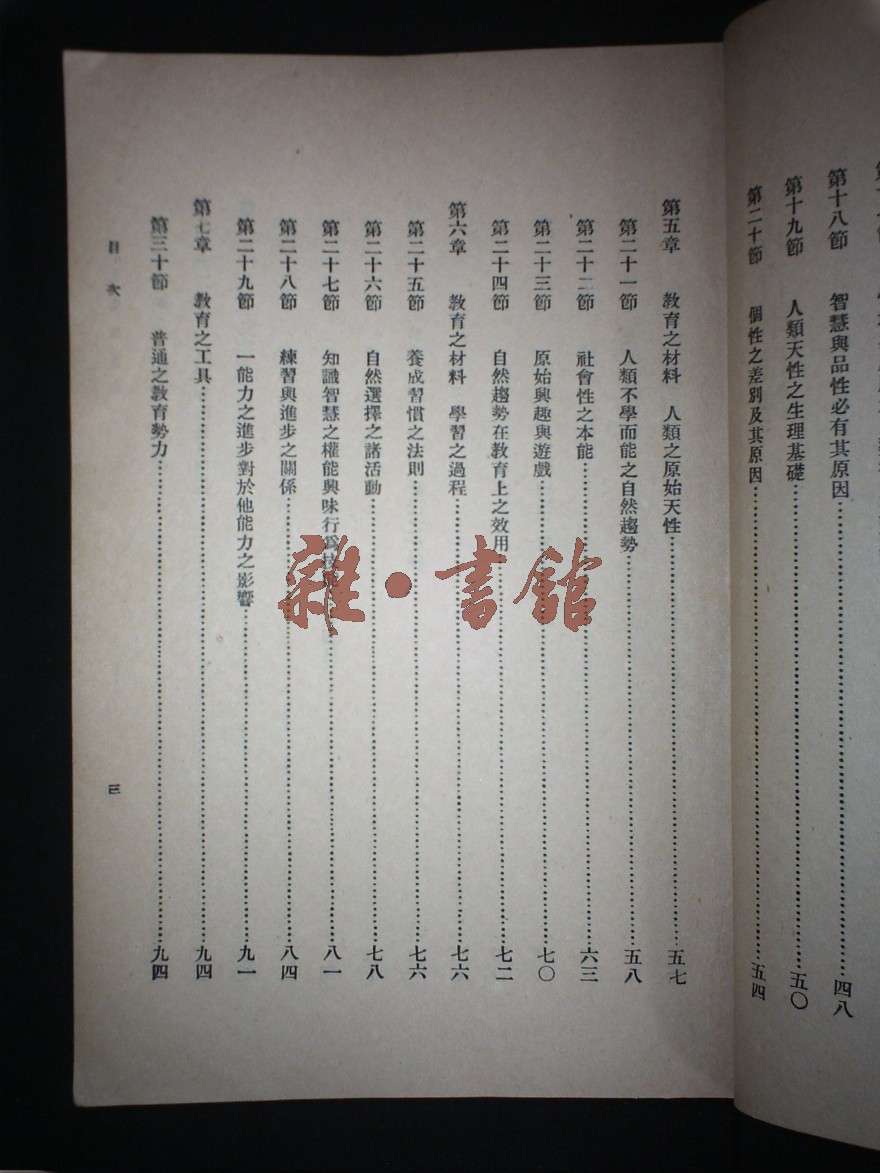 第十八節 智慧與品性必有其原因 四八
第十九節 人類天性之生理基礎 五〇
第二十節 個性之差別及其原因 五四
第五章 教育之材料 人類之原始天性 五七
第二十一節 人類不學而能之自然趨勢 五八
第二十二節 社會性之本能 六三
第二十三節 原始興趣與遊戲 七〇
第二十四節 自然趨勢在教育上之效用 七二
第六章 教育之材料 學習之過程 七六
第二十五節 養成習慣之法則 七六
第二十六節 自然選擇之諸活動 七八
第二十七節 知識智慧之權能興味行爲技 八一
第二十八節 練習與進步之關係 八四
第二十九節 一能力之進步對於他能力之影響 九一
第七章 教育之工具 九四
第三十節 普通之教育勢力 九四
目次 三
雜·書館